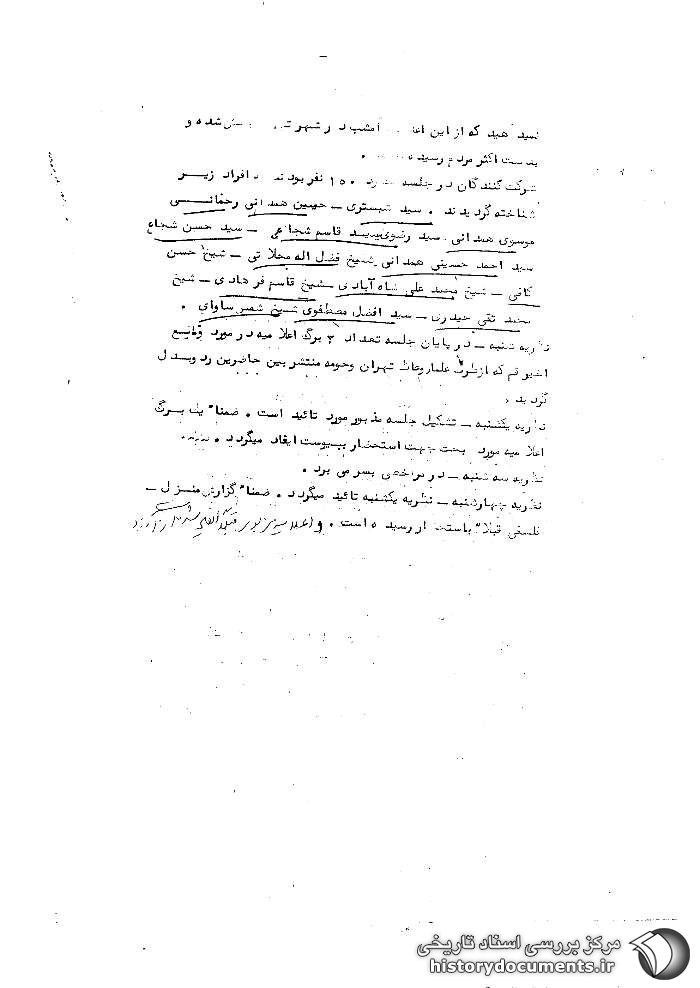 نمیدهید که از این اعلا امشب در شهر پخش شده و
بدست اکثر مردم رسیده .
شرکت کنندگان در جلسه حدود ۱۵۰ نفر بودند و افراد زیر
شناخته گردیدند . سید شبستری – حسین همدانی رحمانی
موسوی همدانی . سید رضوی سید قاسم شجاعی – سید حسن شجاع
سید احمد حسینی همدانی شیخ فضل اله محلاتی – شیخ حسن
کافی – شیخ محمد علی شاه آبادی – شیخ قاسم فرهادی – شیخ
محمد تقی حیدری – سید افضل مصطفوی شیخ ساوای .
نظریه شنبه – در پایان جلسه تعداد ۳ برگ اعلامیه در مورد وقایع
اخیر قم که از طرف علما و وعاظ تهران و حومه منتشر بین حاضرین رد و بدل
گردید .
نظریه یکشنبه – تشکیل جلسه مذبور مورد تائید است . ضمنا" یک برگ
اعلامیه مورد بحث جهت استحضار بپیوست ایفاد میگردد .
نظریه سه شنبه – در مرخصی بسر می برد .
نظریه چهارشنبه – نظریه یکشنبه تائید میگردد . ضمنا" گزارش منزل –
فلسفی قبلا" باستحضار رسیده است . و اعلامیه
مرکز بررسی اسناد تاریخی
historydocuments.ir